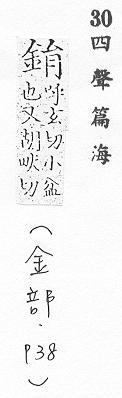 30四聲篇海
鋗呼玄切小盆
也又胡畎切
(金部.P38)